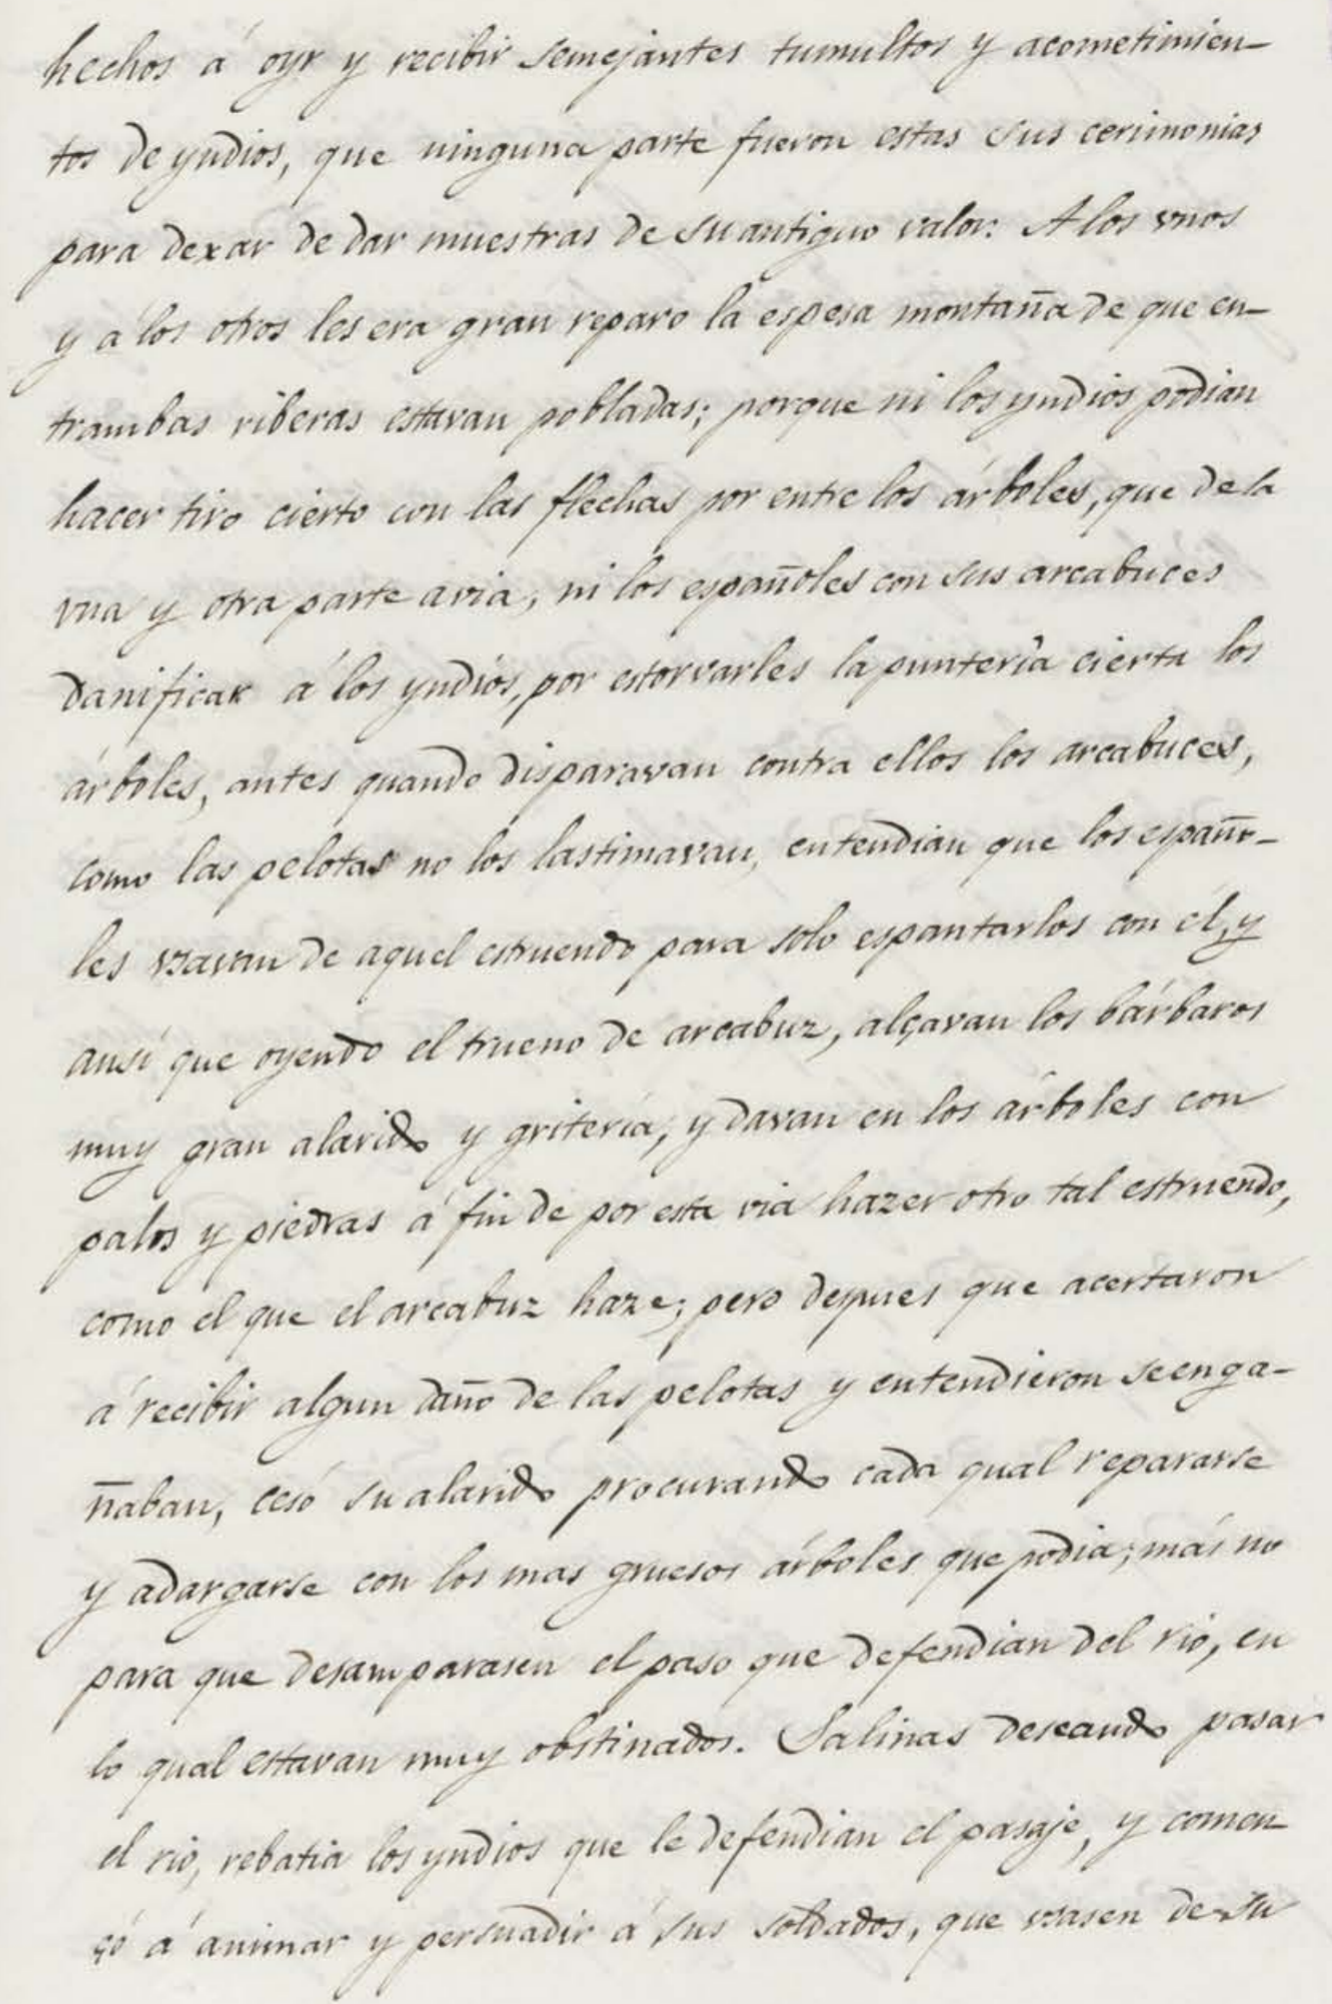 hechos á oyr y recibir semejantes tumultos y acometimien-
tos de yndios, que ninguna parte fueron estas sus cerimonias
para dexar de dar muestras de su antiguo valor. A los vnos
y á los otros les era gran reparo la espesa montaña de que en-
trambas riberas estavan pobladas; porque ni los yndios podian
hacer tiro cierto con las flechas por entre los árboles, que de la
vna y otra parte avia, ni los españoles con sus arcabuces
danificar á los yndios, por estorvarles la puntería cierta los
árboles, antes quando disparavan contra ellos los arcabuces,
como las pelotas no los lastimavan, entendian que los españo-
les vsavan de aquel estruendo para solo espantarlos con él, y
ansí que oyendo el trueno de arcabuz, alçavan los bárbaros
muy gran alarido y gritería, y davan en los árboles con
palos y piedras á fin de por esta via hazer otro tal estruendo,
como el que el arcabuz haze; pero depues que acertaron
á recibir algun daño de las pelotas y entendieron se enga-
ñaban, cesó su alarido procurando cada qual repararse
y adargarse con los mas gruesos árboles que podia; más no
para que desamparasen el paso que defendian del rio, en
lo qual estavan muy obstinados. Salinas deseando pasar
el rio, rebatia los yndios que le defendian el pasaje, y comen-
çó á animar y persuadir á sus soldados, que vsasen de su